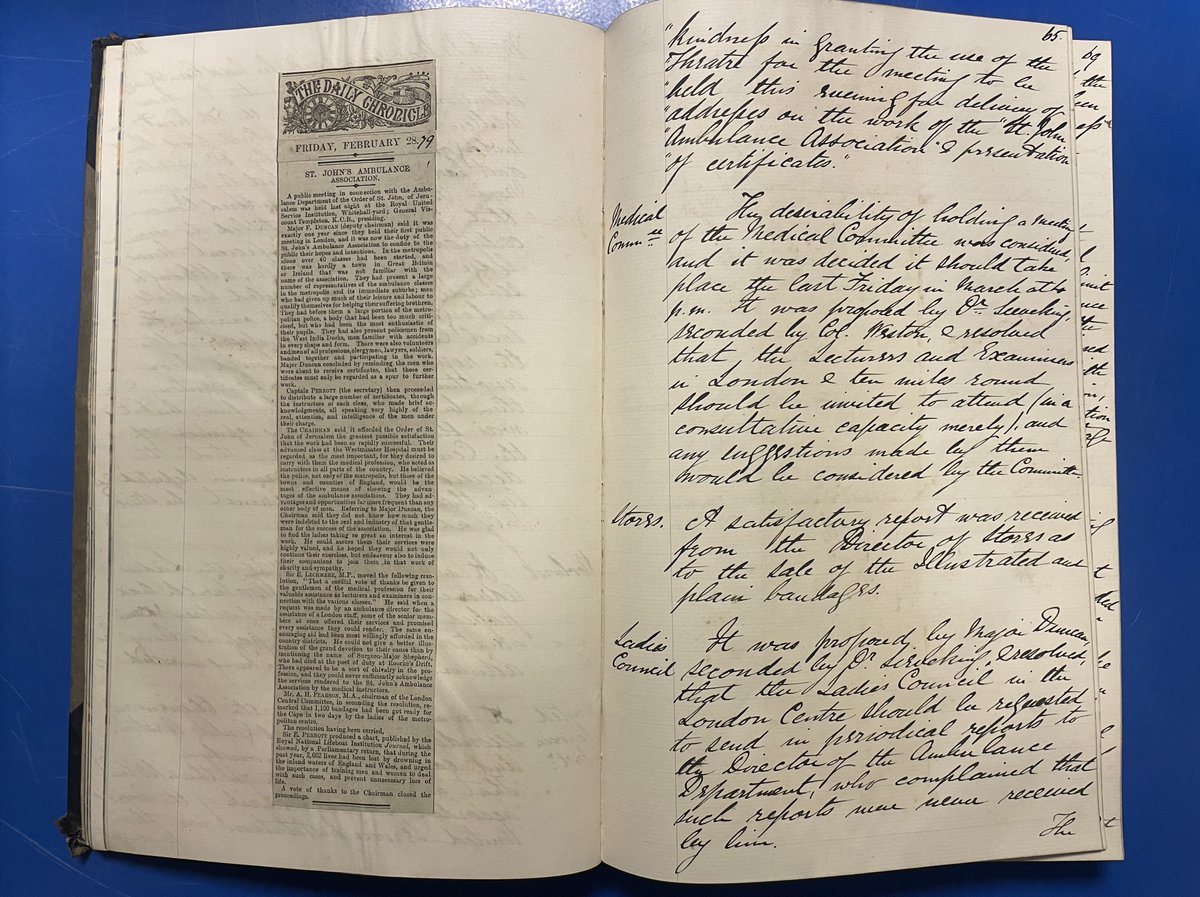 THE DAILY CHRONICLE
FRIDAY, FEBRUARY 28. 79
ST. JOHN'S AMBULANCE
ASSOCIATION.
A public meeting in connection with the Ambu-
lance Department of the Order of St. John, of Jeru-
salem was held last night at the Royal United
Service Institution, Whitehall-yard; General Vis-
count Templeton, K.C.B., presiding.
Major F. DUNCAN (deputy chairman) said it was
exactly one year since they held their first public
meeting in London, and it was now the duty of the
St. John's Ambulance Association to confide to the
public their hopes and intentions. In the metropolis
alone over 40 classes had been started, and
there was hardly a town in Great Britain
or Ireland that was not familiar with the
name of the association. They had present a large
number of representatives of the ambulance classes
in the metropolis and its immediate suburbs; men
who had given up much of their leisure and labour to
qualify themselves for helping their suffering brethren.
They had before them a large portion of the metro-
politan police, a body that had been too much criti-
cised, but who had been the most enthusiastic of
their pupils. They had also present policemen from
the West India Docks, men familiar with accidents
in every shape and form. There were also volunteers
and men of all professions, clergymen, lawyers, soldiers,
banded together and participating in the work.
Major Duncan concluded by reminding the men who
were about to receive certificates, that those cer-
tificates must only be regarded as a spur to further
work.
Captain PERROTT (the secretary) then proceeded
to distribute a large number of certificates, through
the instructors of each class, who made brief ac-
knowledgments, all speaking very highly of the
zeal, attention, and intelligence of the men under
their charge.
The CHAIRMAN said it afforded the Order of St.
John of Jerusalem the greatest possible satisfaction
that the work had been so rapidly successful. Their
advanced class at the Westminster Hospital must be
regarded as the most important, for they desired to
carry with them the medical profession, who acted as
instructors in all parts of the country. He believed
the police, not only of the metropolis, but those of the
towns and counties of England, would be the
most effective means of showing the advan-
tages of the ambulance associations. They had ad-
vantages and opportunities far more frequent than any
other body of men. Referring to Major Duncan, the
Chairman said they did not know how much they
were indebted to the zeal and industry of that gentle-
man for the success of the association. He was glad
to find the ladies taking so great an interest in the
work. He could assure them their services were
highly valued, and he hoped they would not only
continue their exercises, but endeavour also to induce
their companions to join them in that work of
charity and sympathy.
Sir E. LECHMERE, M.P., moved the following reso-
lution, "That a cordial vote of thanks be given to
the gentlemen of the medical profession for their
valuable assistance as lecturers and examiners in con-
nection with the various classes." He said when a
request was made by an ambulance director for the
assistance of a London staff, some of the senior mem-
bers at once offered their services and promised
every assistance they could render. The same en-
couraging aid had been most willingly afforded in the
country districts. He could not give a better illustra-
tion of the grand devotion to their cause than by
mentioning the name of Surgeon-Major Shepherd,
who had died at the post of duty at Rorke's Drift.
There appeared to be a sort of chivalry in the pro-
fession, and they could never sufficiently acknowledge
the services rendered to the St. John's Ambulance
Association by the medical instructors.
Mr. A. H. PEARSON, M.A., chairman of the London
Central Committee, in seconding the resolution, re-
marked that 1,100 bandages had been got ready for
the Cape in two days by the ladies of the metro-
politan centre.
The resolution having been carried,
Sir E. PERROTT produced a chart, published by the
Royal National Lifeboat Institution Journal, which
showed, by a Parliamentary return, that during the
past year, 2,662 lives had been lost by drowning in
the inland waters of England and Wales, and urged
the importance of training men and women to deal
with such cases, and prevent unnecessary loss of
life.
A vote of thanks to the Chairman closed the
proceedings.
65.
"kindness in granting the use of the
"Theatre for the meeting to be
"held this evening for delivery of
"addresses on the work of the "St. John
"Ambulance Association" & presentation
"of certificates."
Medical Commee
The desirability of holding a meeting
of the Medical Committee was considered,
and it was decided it should take
place the last Friday in March at 4
p.m. It was proposed by Dr. Sieveking,
seconded by Col. Weston, & resolved
that, the Lecturers and Examiners
in London & ten miles round
should be invited to attend (in a
consultative capacity merely), and
any suggestions made by them
would be considered by the Committee.
Stores. A satisfactory report was received
from the Director of Stores as
to the sale of the Illustrated and
plain bandages.
Ladies Council
It was proposed by Major Duncan
seconded by Dr. Sieveking, & resolved,
that the Ladies Council in the
London Centre should be requested
to send in periodical reports to
the Director of the Ambulance
Department, who complained that
such reports were never received
by him.
The